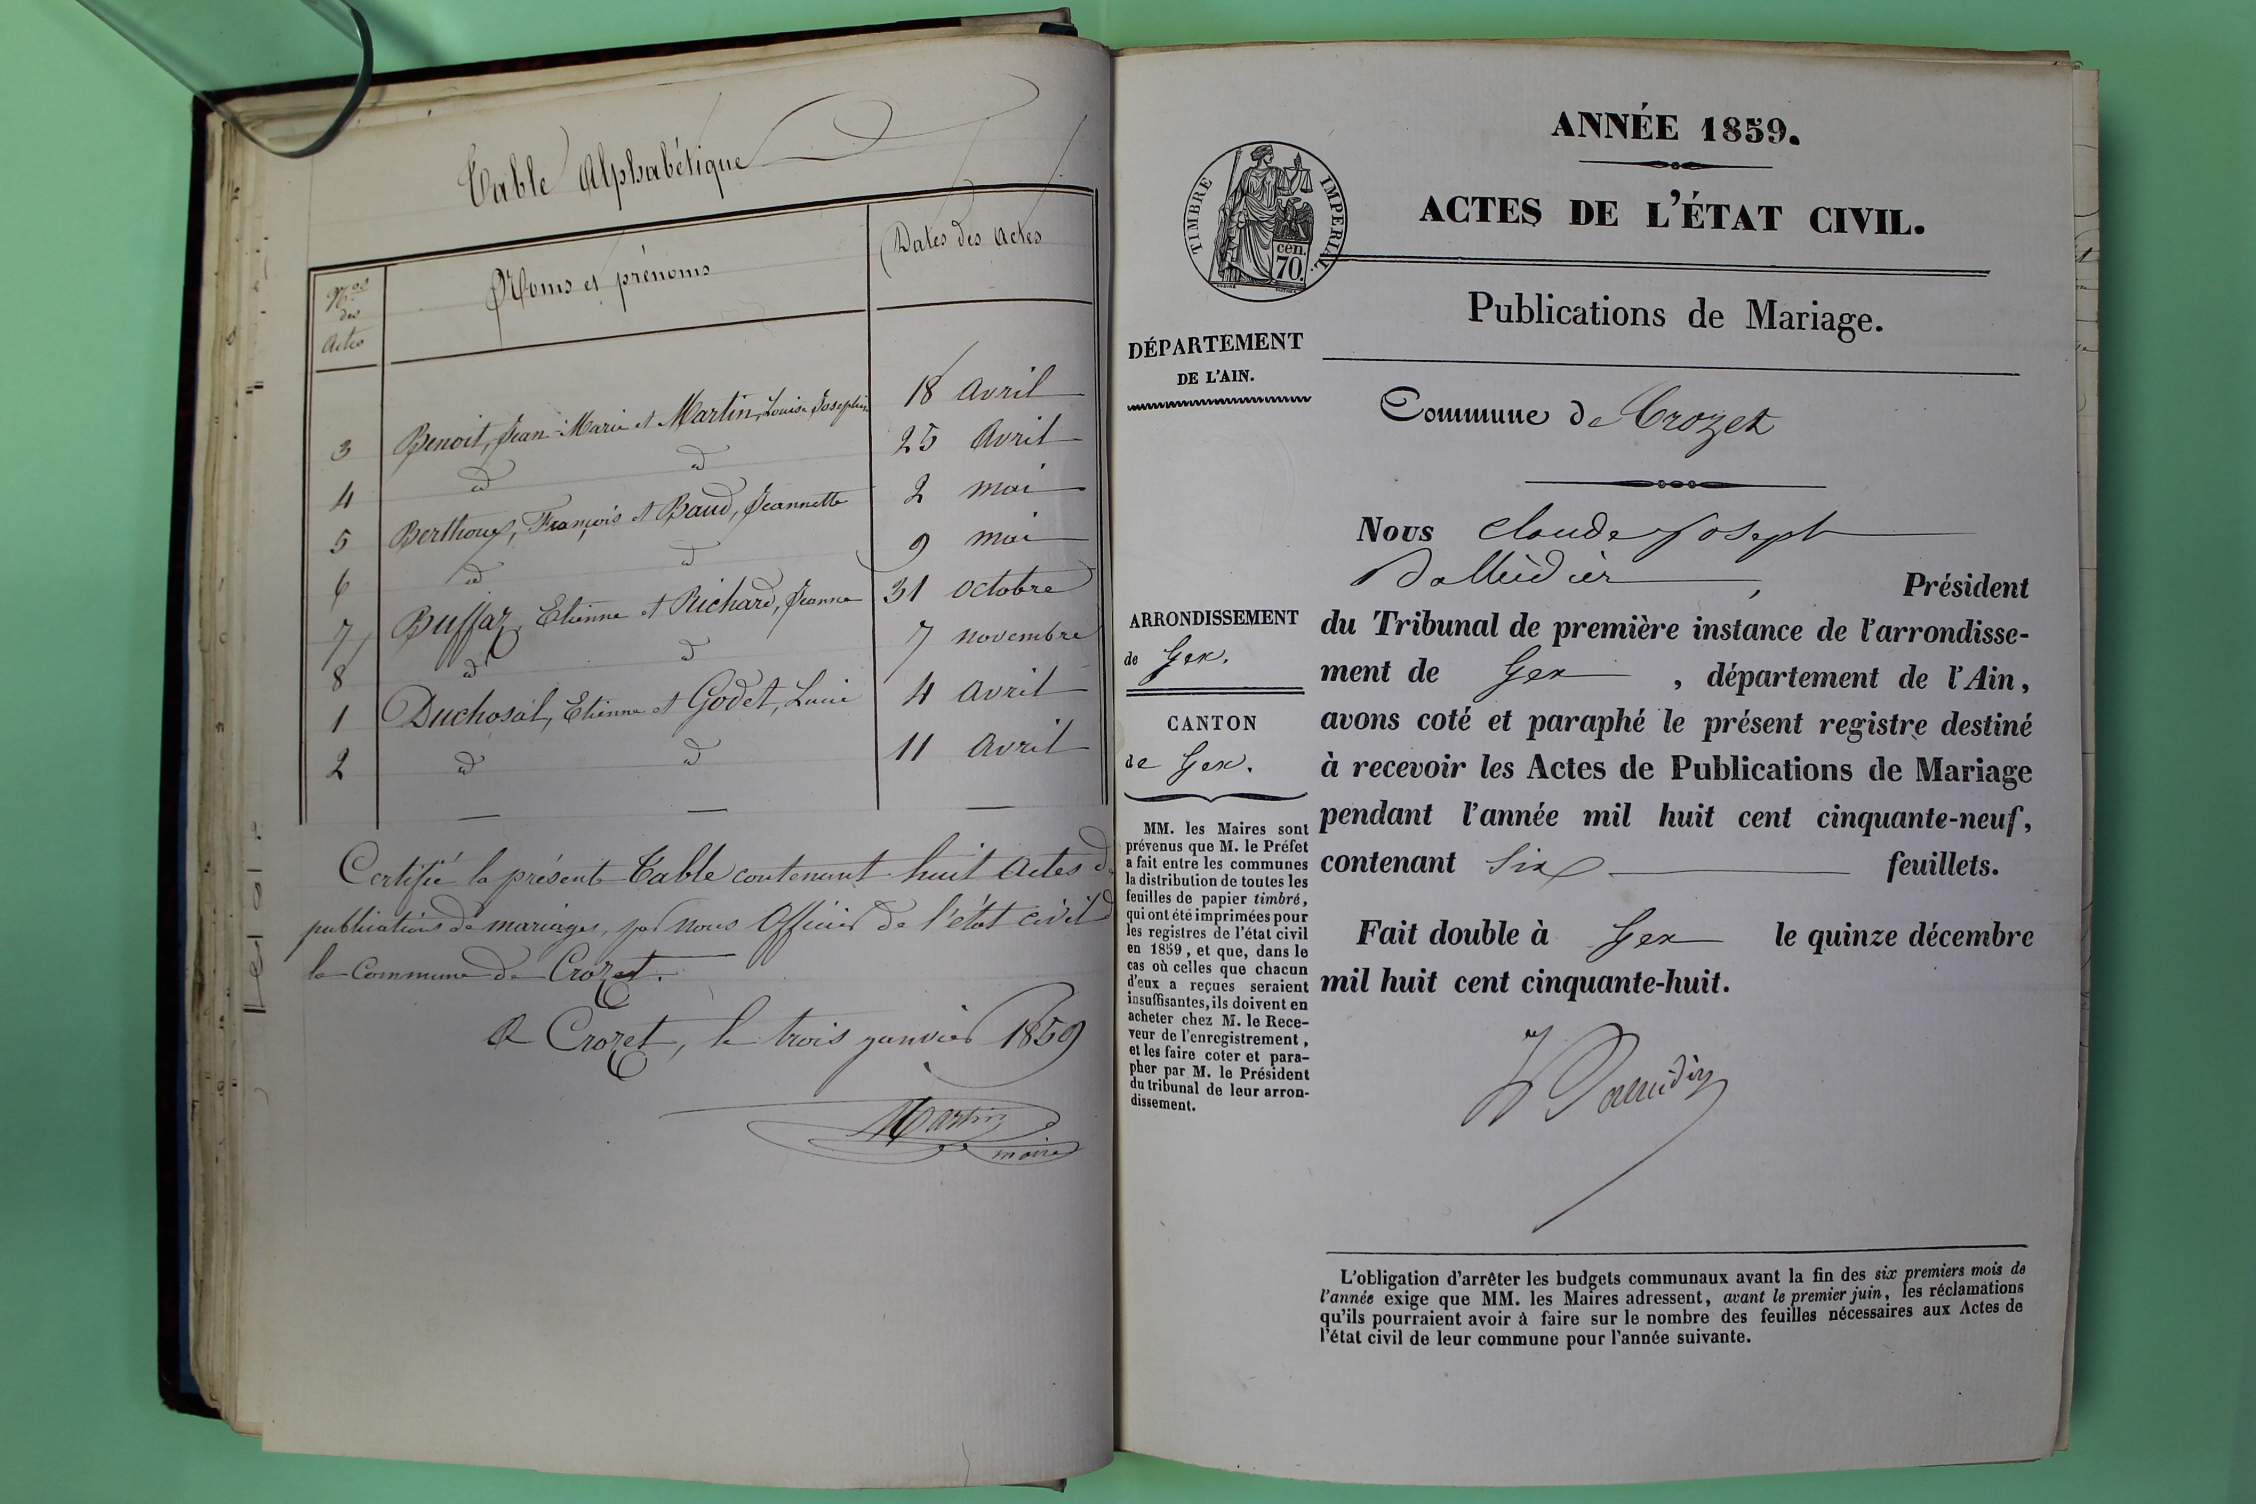 Table Alphabétique
Nos des Actes
Noms et prénoms
Dates des actes
3 Benoit, Jean-Marie et Martin, Louise Josephine 18 avril
4 d d 25 avril
5 Berthoud, François et Baud, Jeannette 2 mai
6 d d 9 mai
7 Buffaz, Etienne et Richard, Jeanne 31 octobre
8 d d 7 novembre
1 Duchosal, Etienne et Godet, Lucie 4 avril
2 d d 11 avril
Certifié la présente Table contenant huit actes de
publications de mariages, par nous Officier de l'état civil de
la Commune de Crozet.
A Crozet, le trois janvier 1859
Martin
maire
ANNÉE 1859.
ACTES DE L'ÉTAT CIVIL.
TIMBRE IMPERIAL.
cen.
70.
Publications de Mariage.
DÉPARTEMENT
DE L'AIN.
Commune de Crozet
Nous Claude Joseph
, Président
du Tribunal de première instance de l'arrondisse-
ment de Gex , département de l'Ain,
avons coté et paraphé le présent registre destiné
à recevoir les Actes de Publications de Mariage
pendant l'année mil huit cent cinquante-neuf,
contenant Six feuillets.
Fait double à Gex le quinze décembre
mil huit cent cinquante-huit.
ARRONDISSEMENT
de Gex.
CANTON
de Gex.
MM. les Maires sont
prévenus que M. le Préfet
a fait entre les communes
la distribution de toutes les
feuilles de papier timbré,
qui ont été imprimées pour
les registres de l'état civil
en 1859, et que, dans le
cas où celles que chacun
d'eux a reçues seraient
insuffisantes, ils doivent en
acheter chez M. le Rece-
veur de l'enregistrement,
et les faire coter et para-
pher par M. le Président
du tribunal de leur arron-
dissement.
L'obligation d'arrêter les budgets communaux avant la fin des six premiers mois de
l'année exige que MM. les Maires adressent, avant le premier juin, les réclamations
qu'ils pourraient avoir à faire sur le nombre des feuilles nécessaires aux Actes de
l'état civil de leur commune pour l'année suivante.